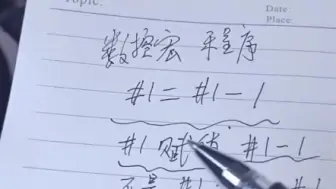 Topic:
Date:
Place:
数控宏 平程序
#1 = #1 - 1
#1 赋值 #1 - 1
不是 #1